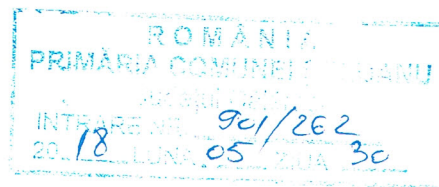 ROMÂNIA
PRIMĂRIA COMUNEI
INTRARE NR. 901/262
20 18 LUNA 05 ZIUA 30